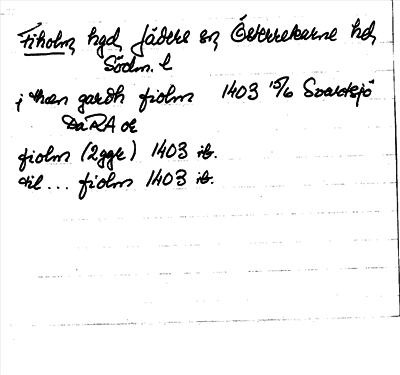 Fiholm, hgd, Jäders sn, Österrekarne hd,
Södm. l
i thæn gardh fiolm 1403 15/6 Svartsjö
DaRA or
fiolm (2 ggr) 1403 ib.
til ... fiolm 1403 ib.